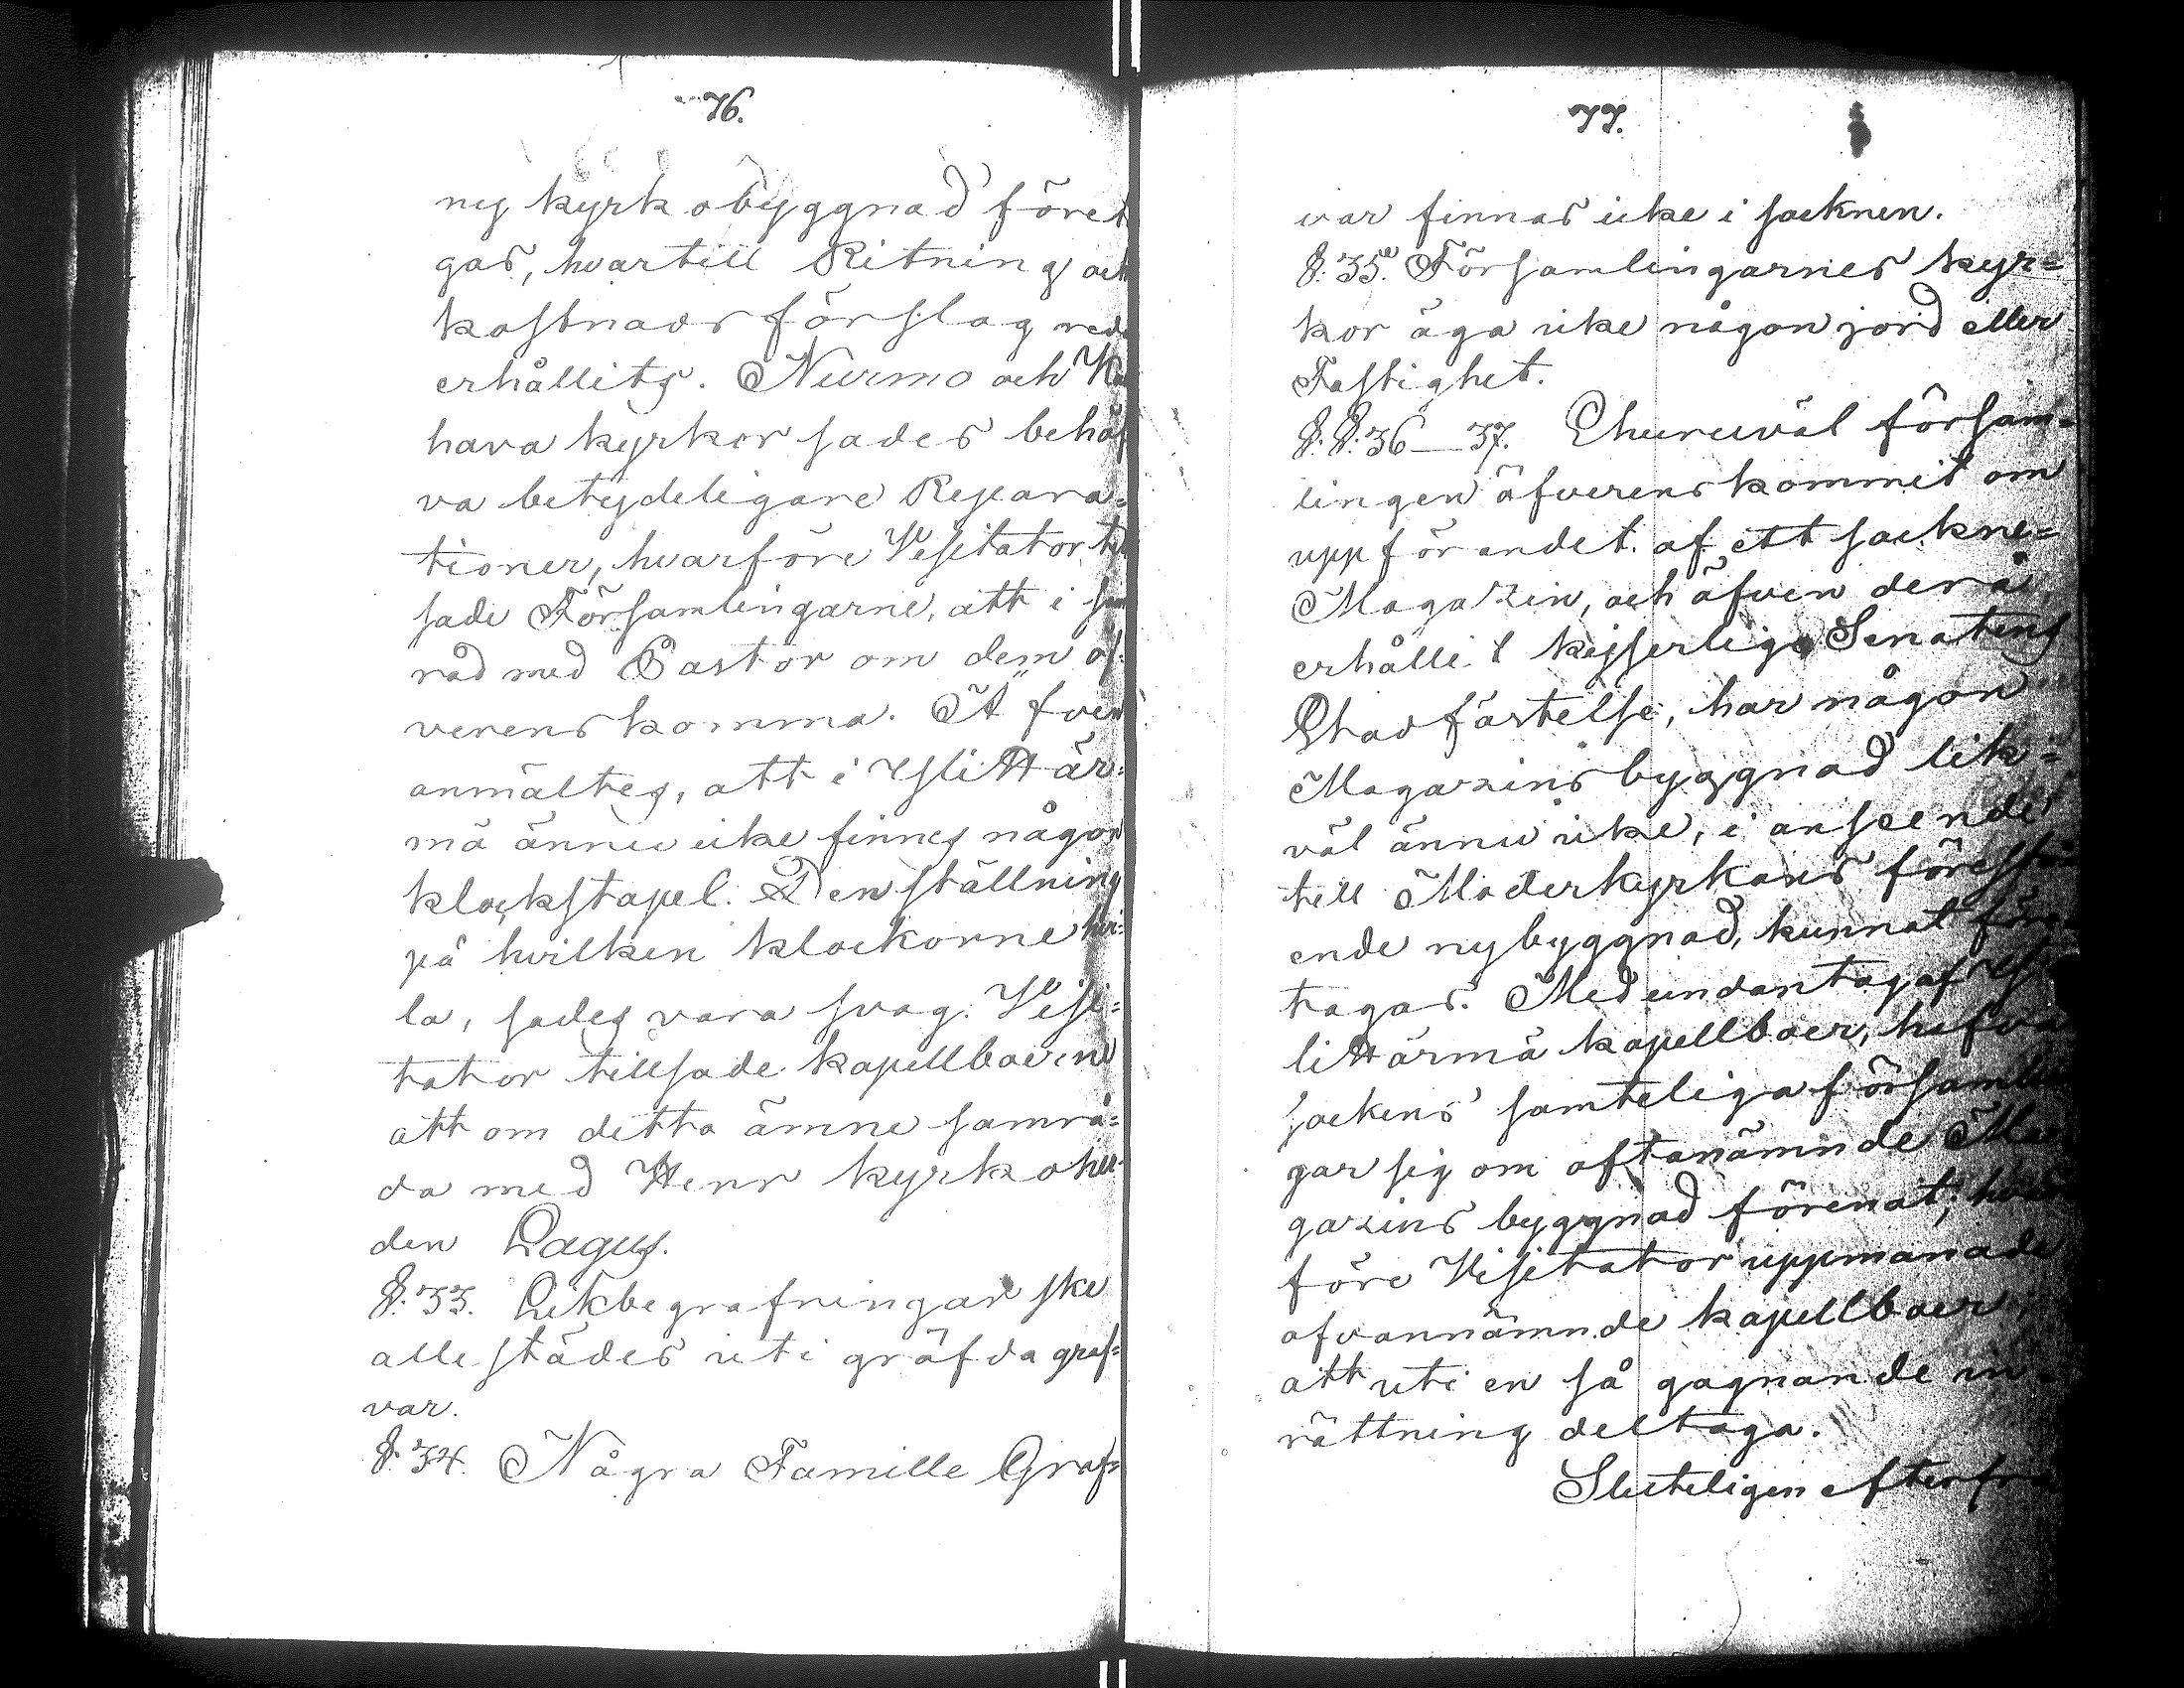 76.
ny kyrkobyggnad föret
gas, hvartill Ritning och
kostnads förslag reda
erhållits. Nurmo och Ka
hava kyrkor sades behöf
va betydeligare Repara=
tioner, hvarföre Visitator til
sade Församlingarne, att i sam
råd med Pastor om dem öf=
verenskomma. Äfven
anmältes, att i Ylittär=
mä ännu icke finnes någon
klockstapel. Den ställning
på hvilken klockorne hvi=
la, sades vara svag. Visi=
tator tillsade kapellboerne
att om detta ämne samrå=
da med Herr kyrkoher=
den Lagus.
§. 33. Likbegrafningar ske
allestädes uti gräfda graf=
var.
§. 34. Några Famille Graf=
77.
var finnas icke i socknen.
§. 35. Församlingarnes kyr=
kor äga icke någon jord eller
Fastighet.
§. §. 36 — 37. Ehuruväl försam=
lingen öfverenskommit om
uppförandet af ett sockne=
Magazin, och äfven derå
erhållit kejserliga Senatens
Stadfästelse, har någon
Magazins byggnad lik=
väl ännu icke, i anseende
till Moderkyrkans förestå
ende nybyggnad, kunnat före
tagas. Med undantag af Yli
littärmä kapellboer, hafva
sockens samteliga församlin
gar sig om oftanämnde Ma
gazins byggnad förenat; hvar
före Visitator uppmanade
ofvannämnde kapellboer
att uti en så gagnande in=
rättning deltaga.
Sluteligen efterfrå